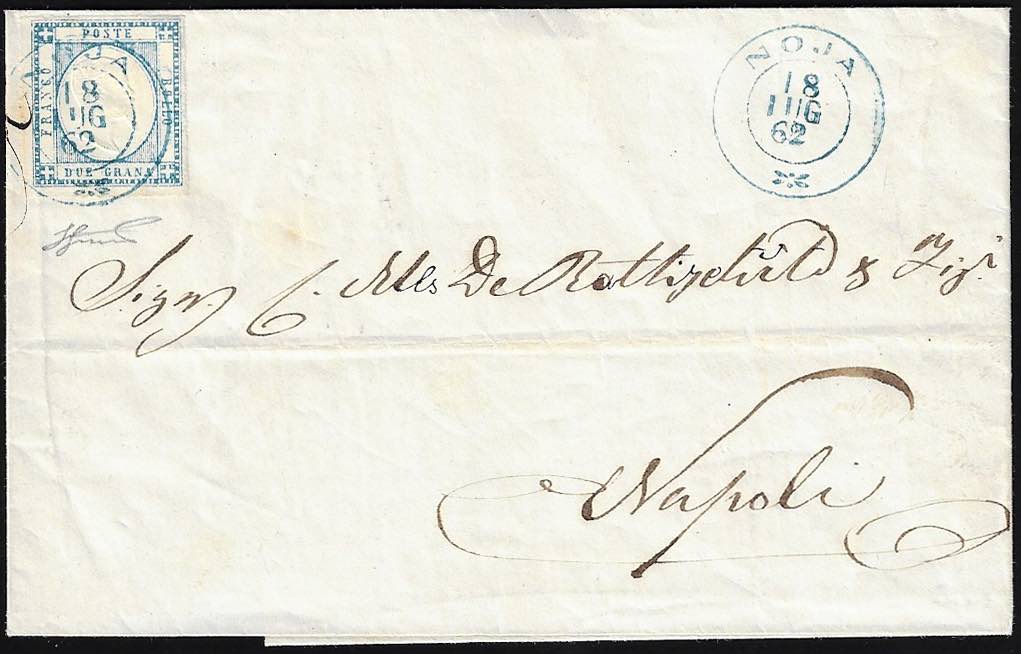 POSTE
FRANCO
BOLLO
DUE GRANA
NOJA
18
LUG
62
NOJA
18
LUG
62
Sigri C. M. De Rothschild & Figi
Napoli